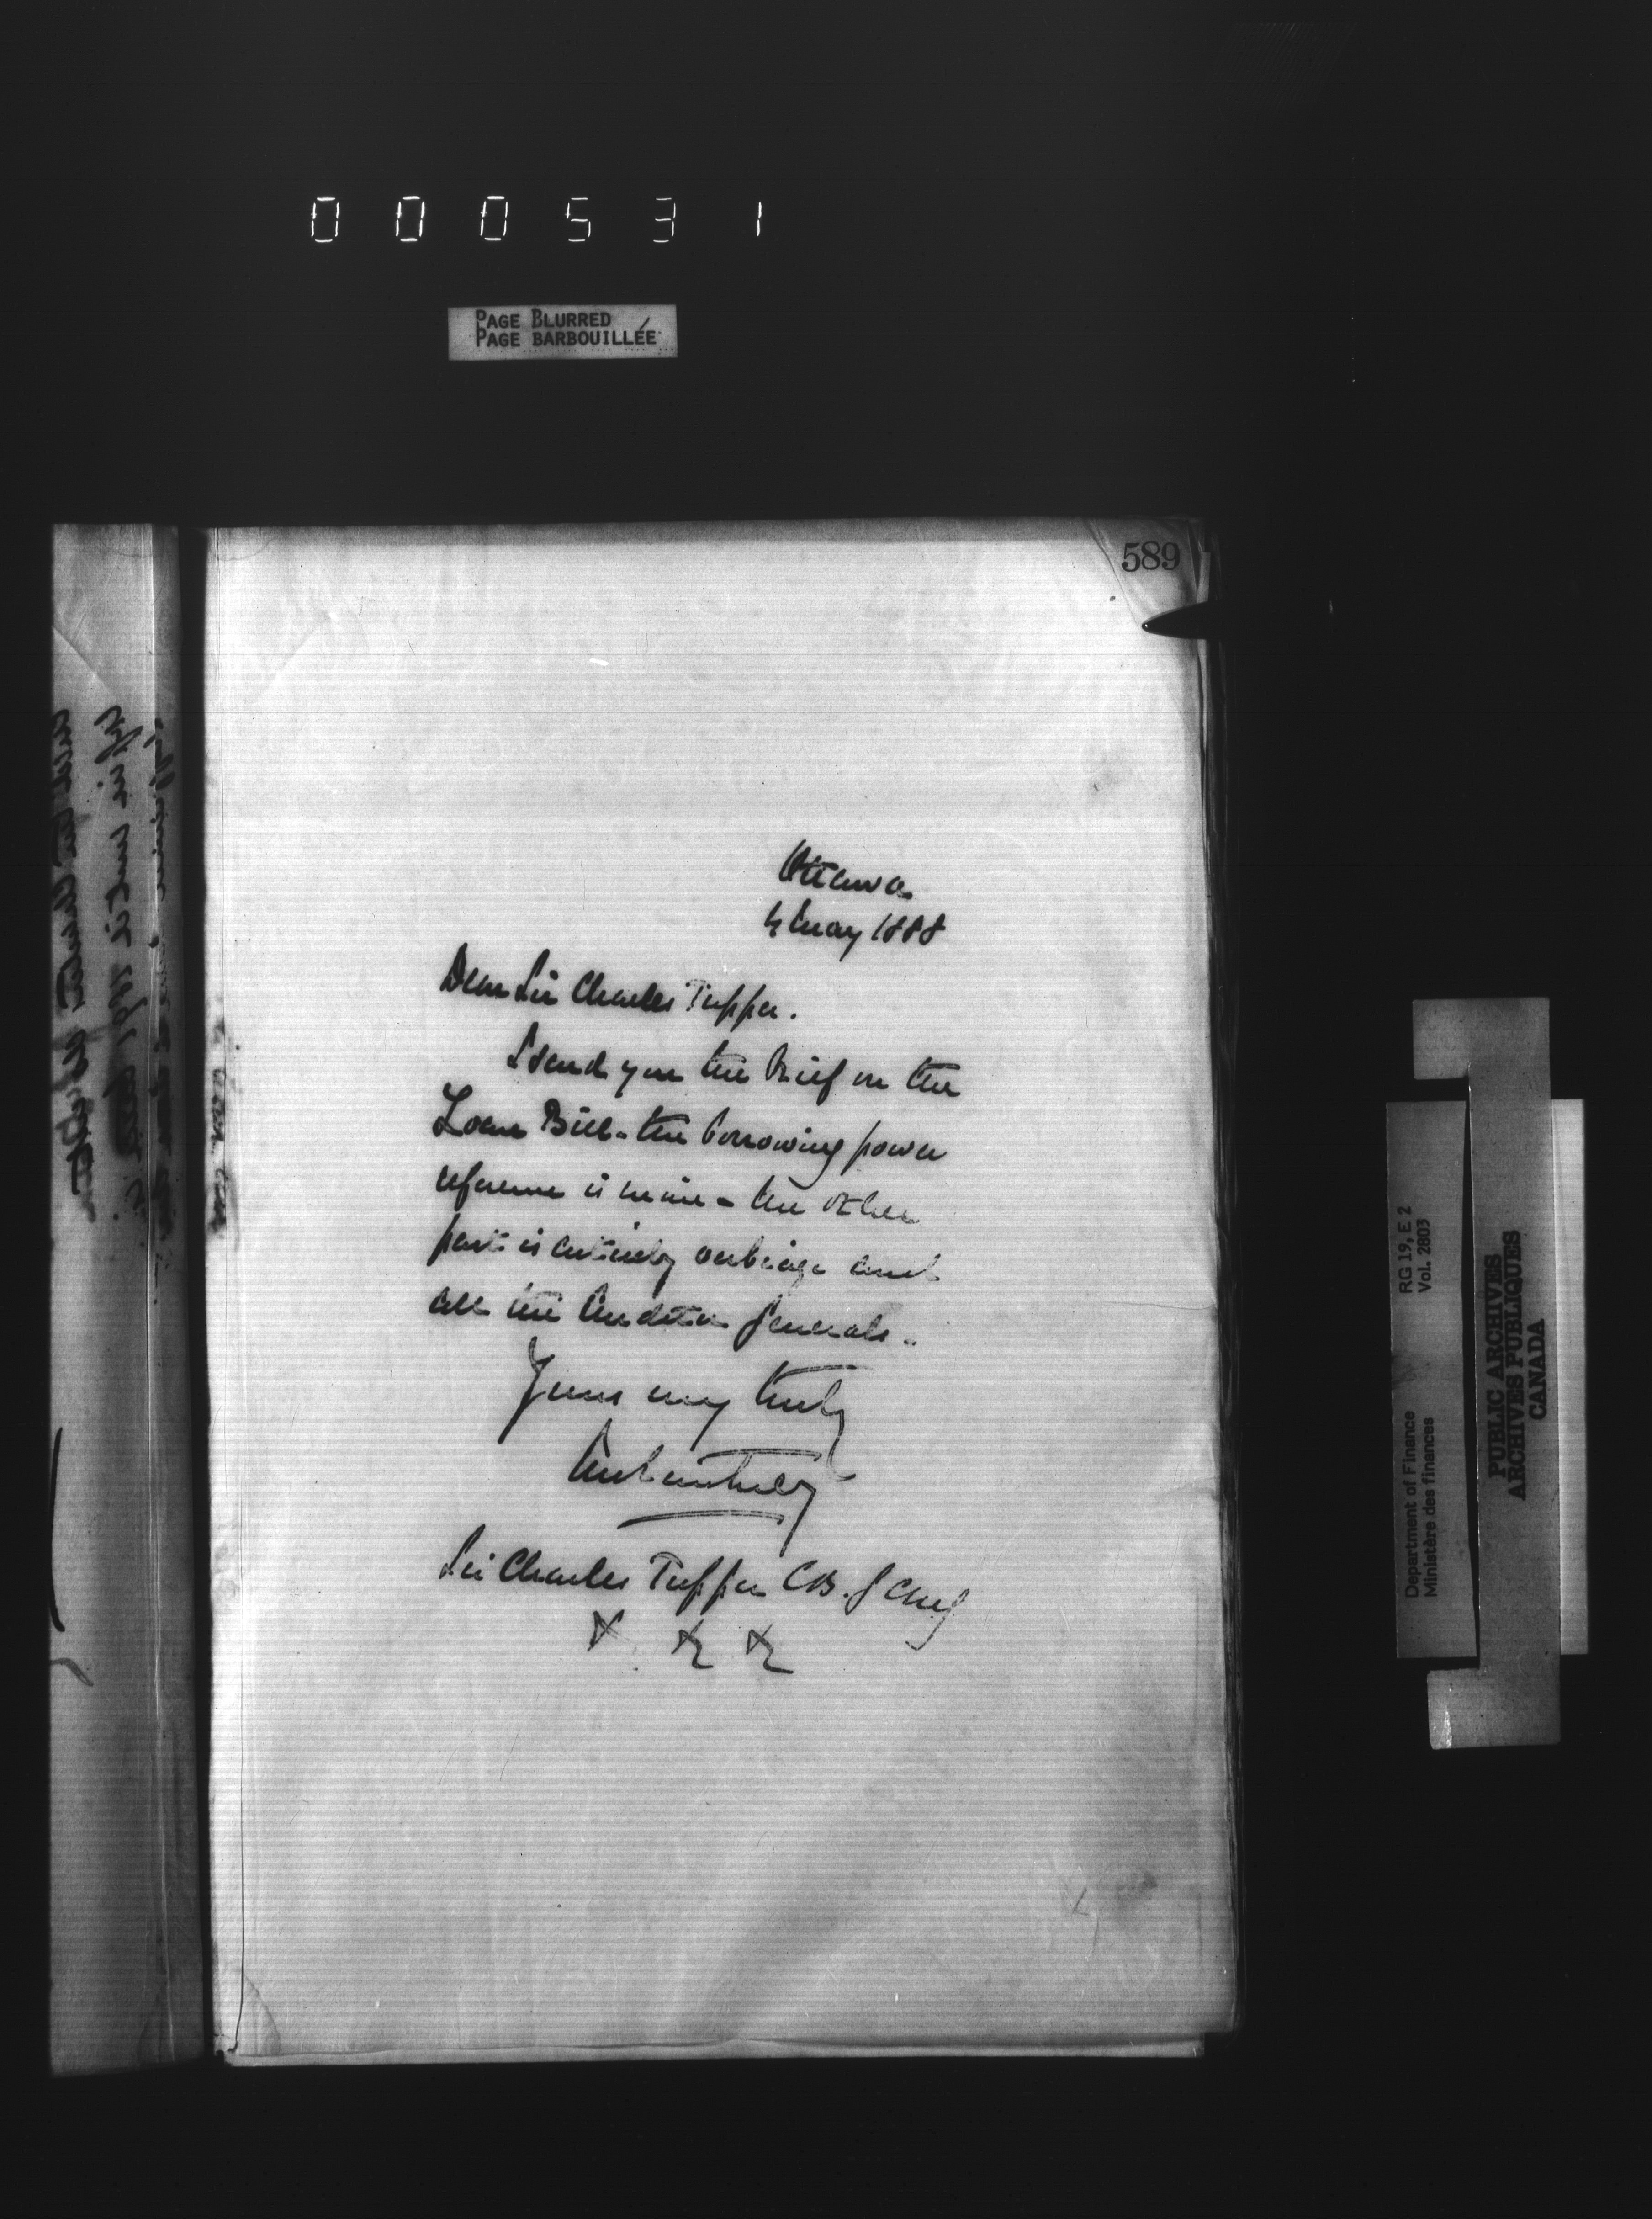 000531
PAGE BLURRED
PAGE BARBOUILLÉE
589
Ottawa
4 May 1888
Dear Sir Charles Tupper.
I send you the Brief on the
Loan Bill - the borrowing power
reference is mine - the other
part is entirely verbiage and
all the Auditor Generals.
Yours very truly
Sir Charles Tupper C.B. G.C.M.G
RG 19, E 2
Vol. 2803
Department of Finance
Ministère des finances
PUBLIC ARCHIVES
ARCHIVES PUBLIQUES
CANADA